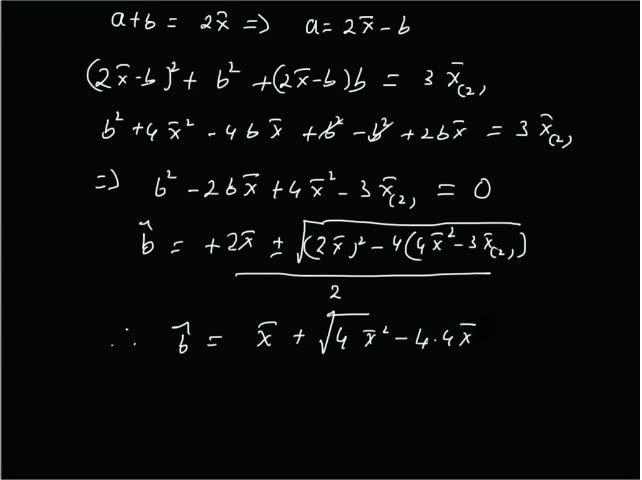 a+b = 2x̄ => a = 2x̄ - b
(2x̄-b)² + b² + (2x̄-b)b = 3x̄₍₂₎
b² + 4x̄² - 4bx̄ + b² - b² + 2bx̄ = 3x̄₍₂₎
=> b² - 2bx̄ + 4x̄² - 3x̄₍₂₎ = 0
b̂ = +2x̄ ± √((2x̄)² - 4(4x̄² - 3x̄₍₂₎))
2
∴ b̂ = x̄ + √4x̄² - 4·4x̄